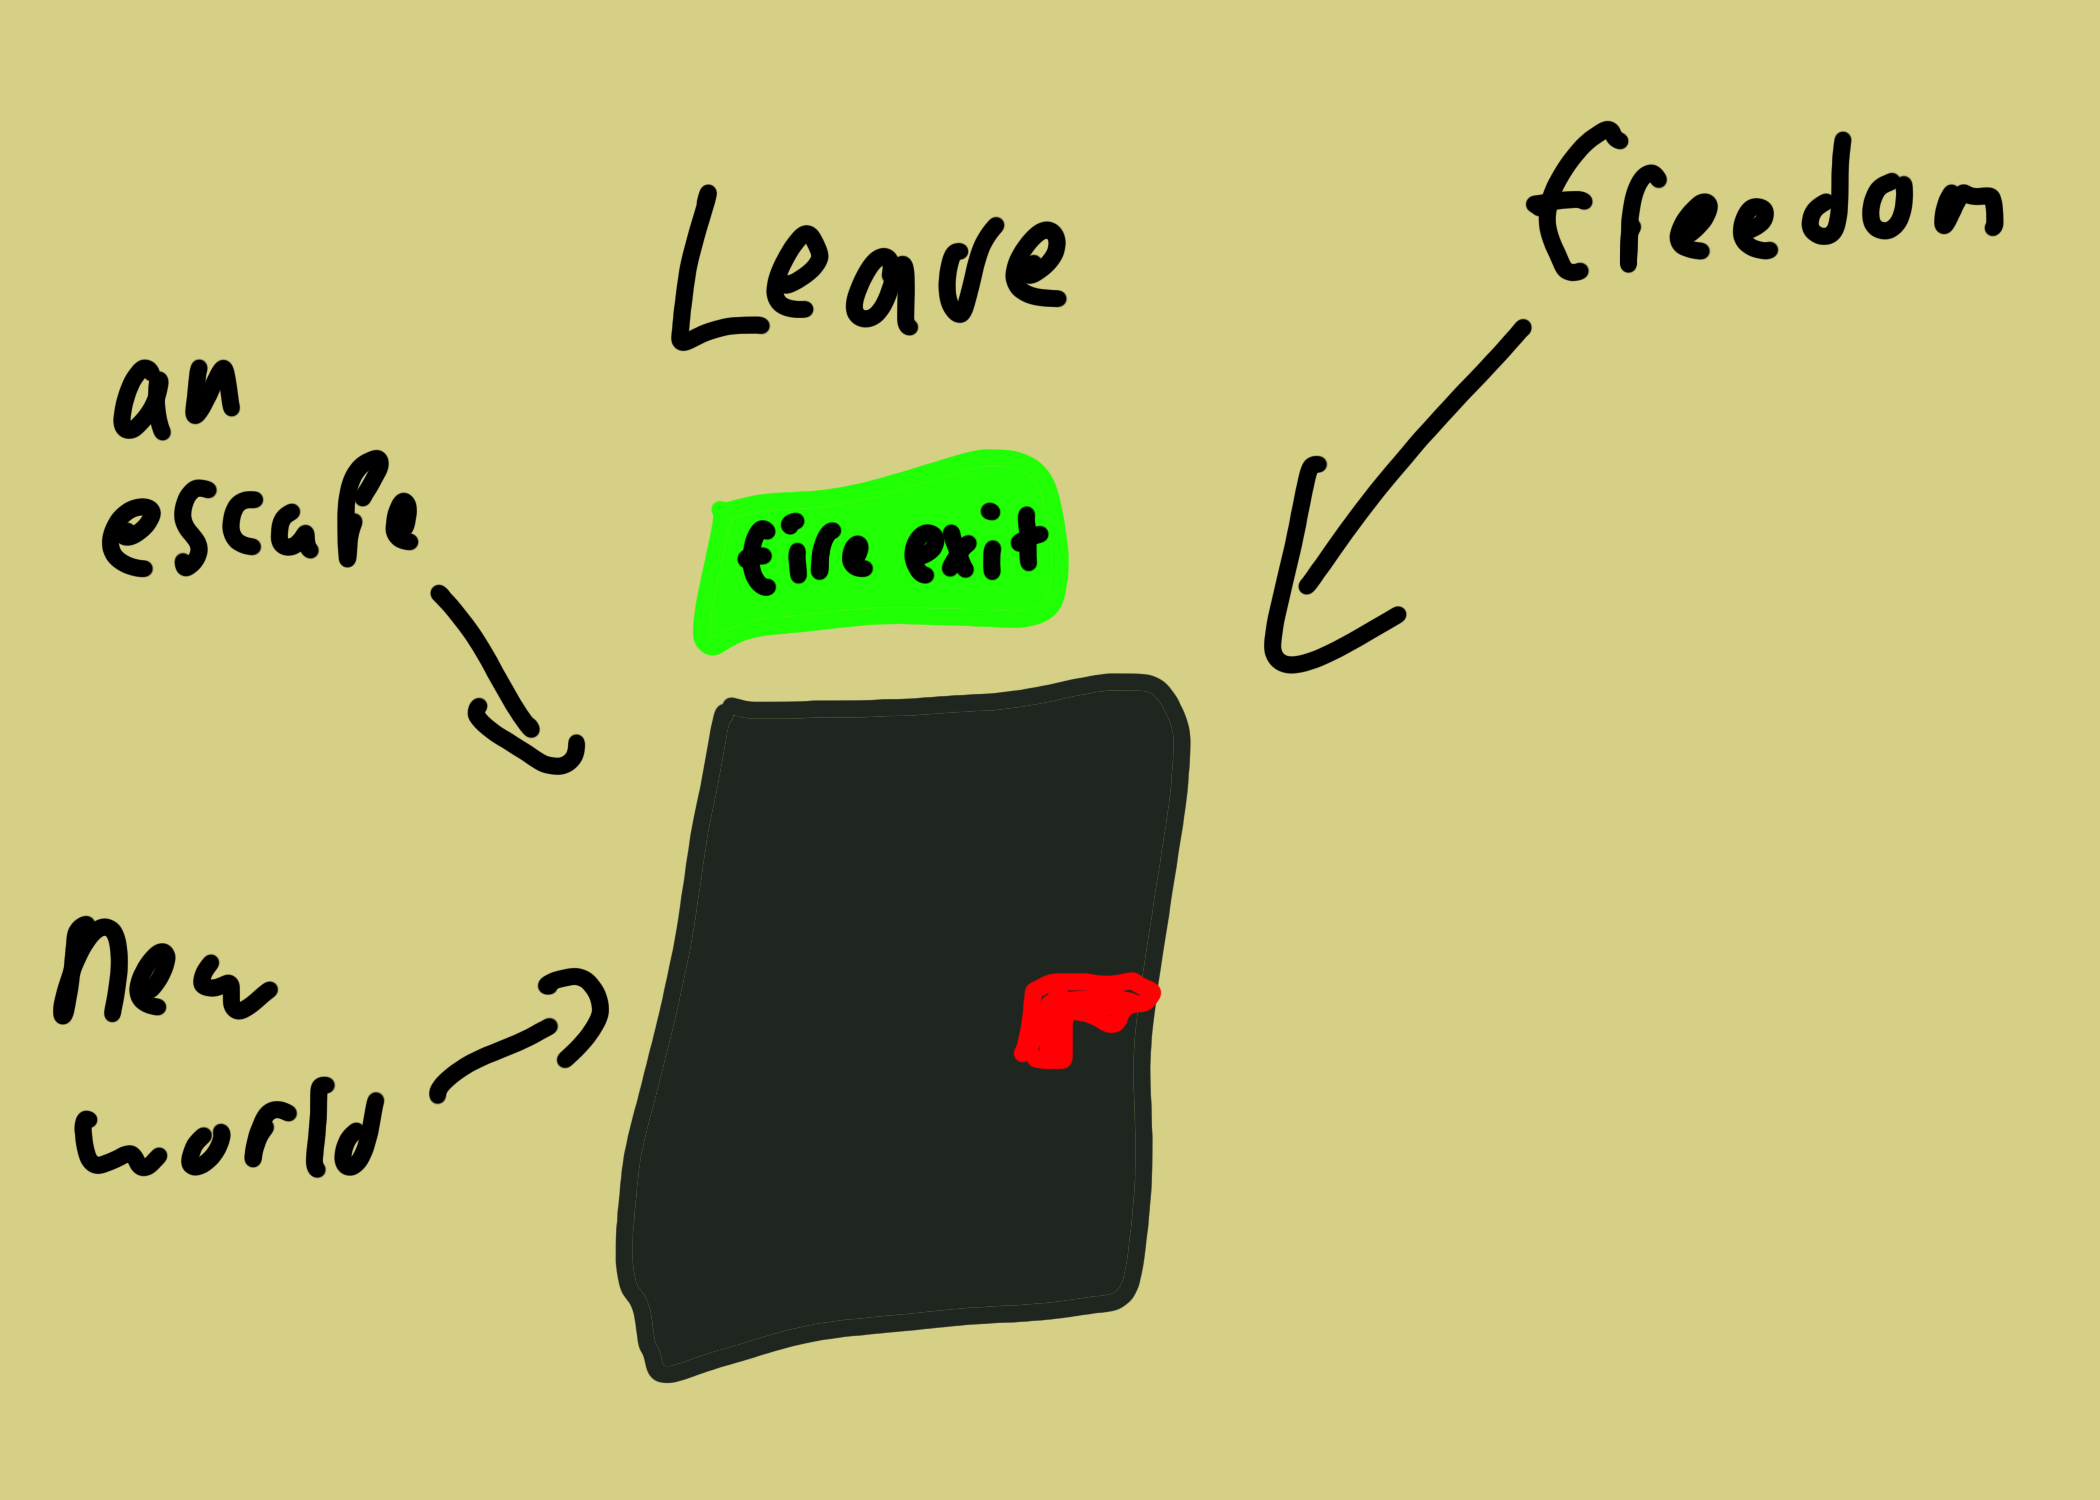 Leave
freedom
an
escape
fire exit
new
world